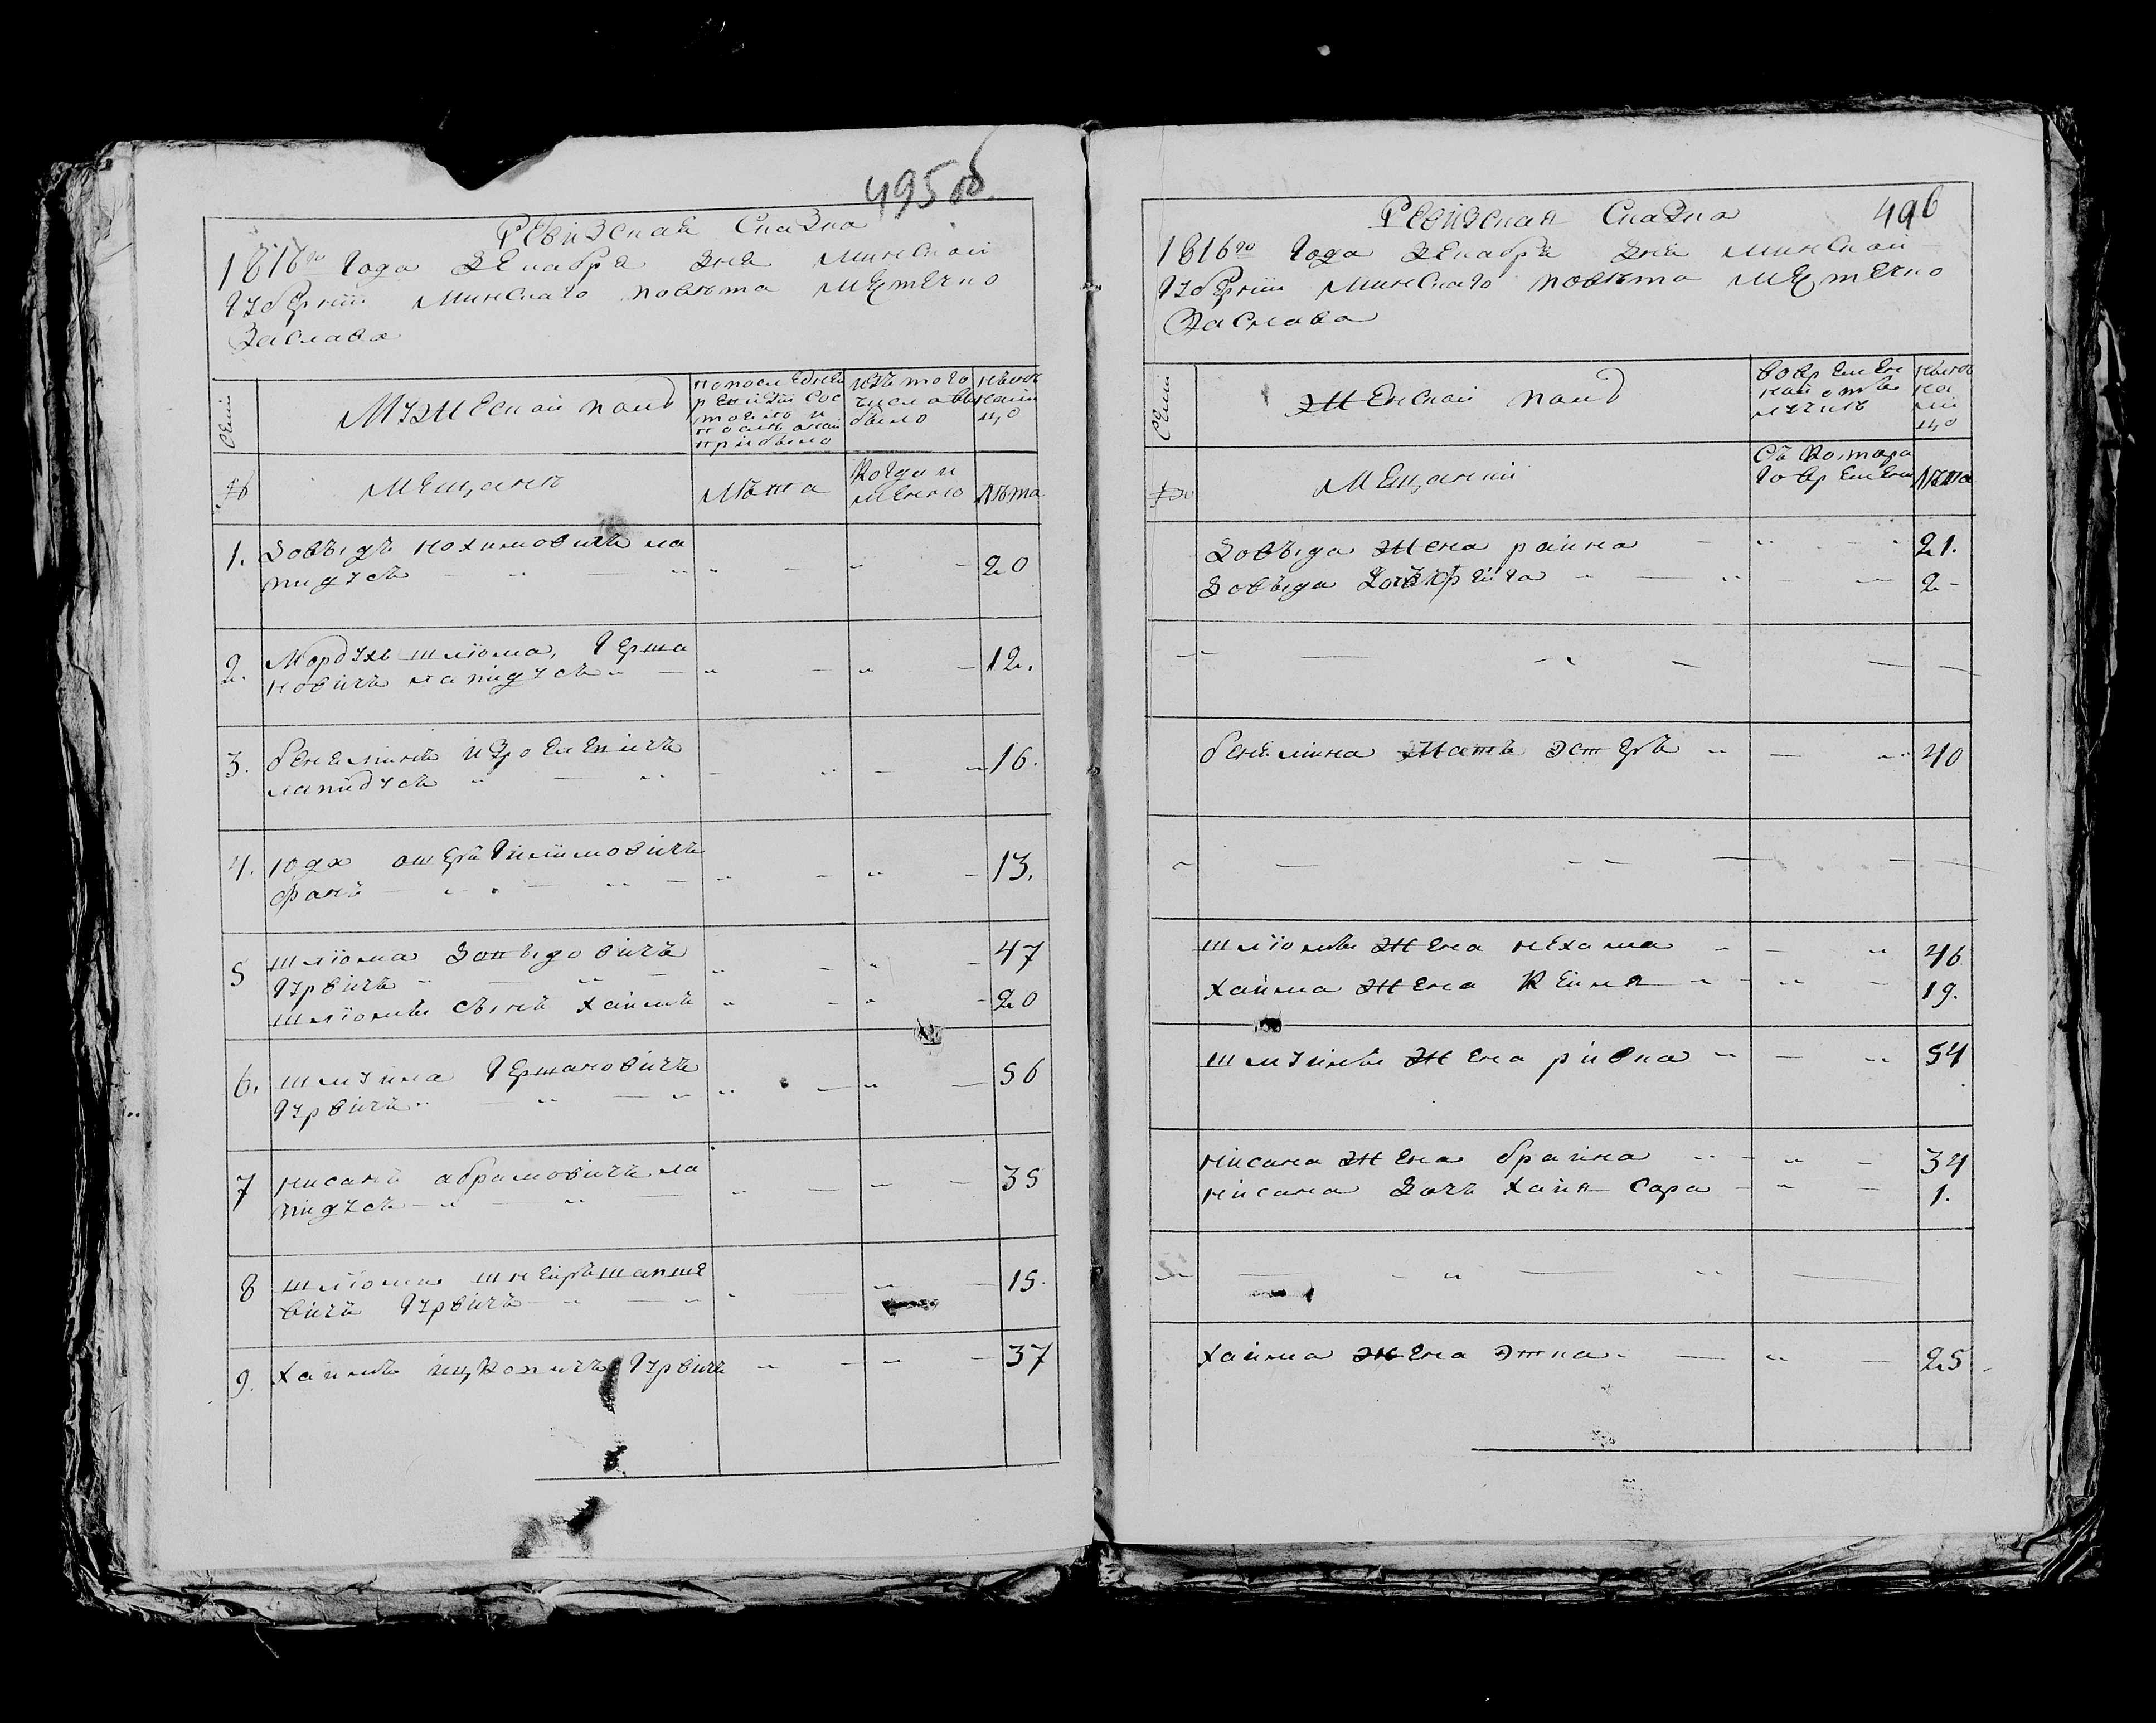 495 об.
Ревизская Сказка
1816го Года Декабря дня Минской
Губернии Минскаго повета местечко
Заслава
Семьи
Мужеской полъ
по последней
ревизии сос
тояло и
после оной
прибыло
изъ того
числа вы
было
ныне на
лицо
№
Мещане
Лета
Когда и
менно
Лета
1. Довыдъ Нохимовичъ ла
пидусъ 20
2. Мордухъ шлiома, Герша
новичъ лапидусъ 12.
3. бенеминъ изроелевичъ
лапидусъ 16.
4. юда ошеръ Гилимовичъ
фанъ 13.
5 шлiома Довыдовичъ 47
Гурвичъ
шлiомы сынъ хаимъ 20
6. шмуила Гершановичъ 56
Гурвичъ
7 нисанъ абрамовичъ ла 35
пидусъ
8 шлiома шнеиръ 15.
вичъ Гурвичъ
9. хаимъ ицковичъ Гурвичъ 37
496
Ревизская Сказка
1816го Года Декабря дня Минской
Губернии Минскаго повета местечко
Заслава
Семьи
Женской полъ
во времен
ной отлу
ныне
на
ли
цо
№
Мещанки
Съ котора
го времени
Лета
Довыда жена раина 21.
Довыда дочь 2
бенемина мать эстеръ 40
шлiомы жена нехама 46
хаима жена 19.
шмуилы жена ривка 54
нисана жена браина 34
нисана дочь хаия сора 1.
хаима жена этка 25